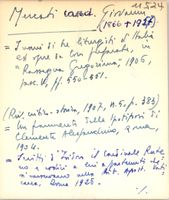 11524
Mercati card. Giovanni
(1866 + 1957)
= I nomi di tre liturgisti d'Italia
ed opere da loro preparate, in
"Rassegna Gregoriana", 1906,
fasc. V, ff. 550-551.
(Riv. critica - storia, 1907, n. 5, p. 383)
= Un frammento delle Ipotiposi di
Clemente Alessandrino, Roma,
1904.
= Scritti d'Isidoro il Cardinale Ruteno
e codici a lui appartenuti che
si conservano nella Bibl. Apost. Vati-
cana, Roma 1926.
./.